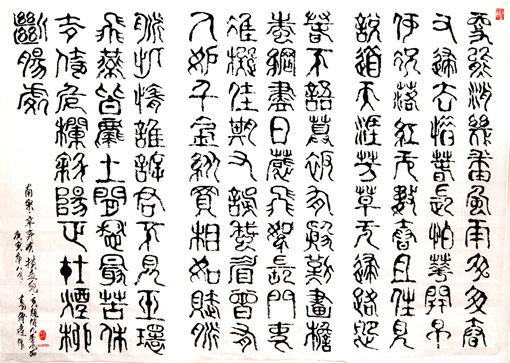 更能消幾番風雨匆匆春
又歸去惜春長怕華開早
何況落紅无數春且住見
說道天涯芳草无歸路怨
春不語算祇有殷勤畫檐
蛛網盡日惹飛絮長門事
准擬佳期又誤蛾眉曾有
人妒千金縱買相如賦脈
脈此情誰訴君不見玉環
飛燕皆塵土閒愁最苦休
去倚危欄斜陽正在煙柳
斷腸處
南宋辛棄疾摸魚兒
庚寅年八月